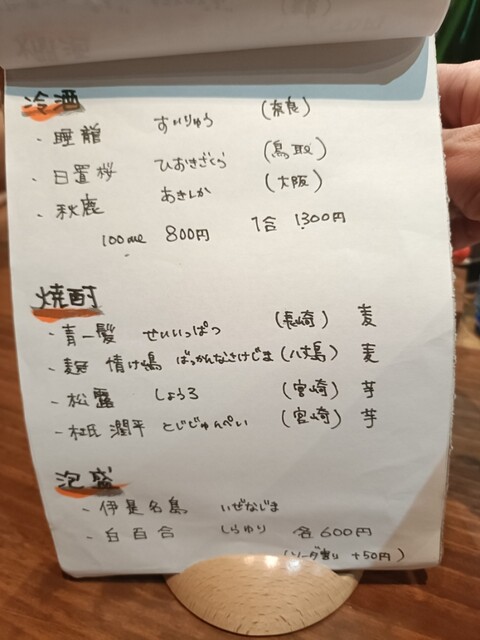 冷酒
・睡龍 すいりゅう (奈良)
・日置桜 ひおきざくら (鳥取)
・秋鹿 あきしか (大阪)
100ml 800円 1合 1300円
焼酎
・青一髪 せいいっぱつ (長崎) 麦
・麹 情け嶋 ばっかんなさけじま (八丈島) 麦
・松露 しょうろ (宮崎) 芋
・杜氏潤平 とじじゅんぺい (宮崎) 芋
泡盛
・伊是名島 いぜなじま
・白百合 しらゆり 各600円
(ソーダ割り +50円)